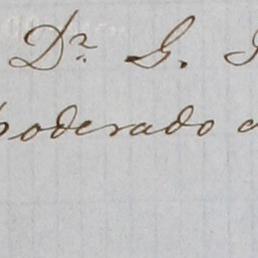 Dr. G.
poderado